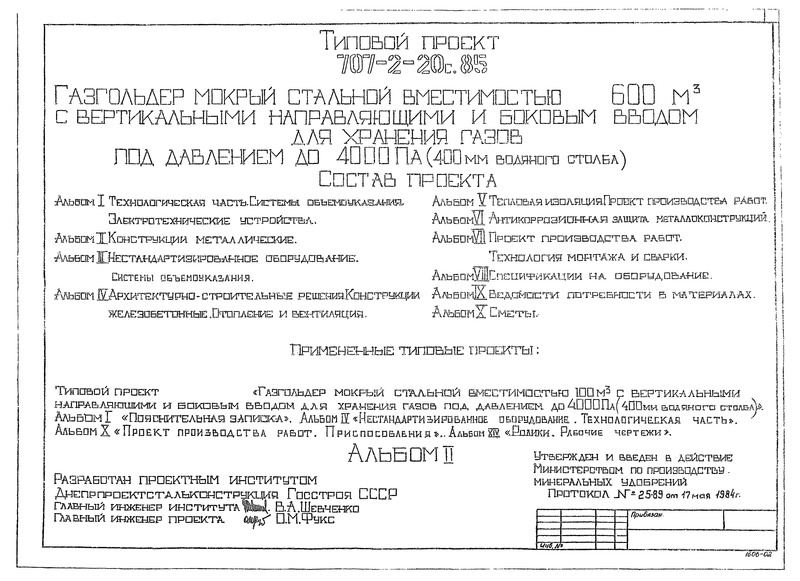 Типовой проект
707-2-20с.85
Газгольдер мокрый стальной вместимостью 600 м³
с вертикальными направляющими и боковым вводом
для хранения газов
под давлением до 4000 Па (400 мм водяного столба)
Состав проекта
Альбом I Технологическая часть. Системы объемоуказания.
Электротехнические устройства.
Альбом II Конструкции металлические.
Альбом III Нестандартизированное оборудование.
Системы объемоуказания.
Альбом IV Архитектурно-строительные решения. Конструкции
железобетонные. Отопление и вентиляция.
Альбом V Тепловая изоляция. Проект производства работ.
Альбом VI Антикоррозионная защита металлоконструкций.
Альбом VII Проект производства работ.
Технология монтажа и сварки.
Альбом VIII Спецификации на оборудование.
Альбом IX Ведомости потребности в материалах.
Альбом X Сметы.
Примененные типовые проекты:
Типовой проект «Газгольдер мокрый стальной вместимостью 100 м³ с вертикальными
направляющими и боковым вводом для хранения газов под давлением до 4000 Па (400 мм водяного столба)».
Альбом I «Пояснительная записка». Альбом IV «Нестандартизированное оборудование. Технологическая часть».
Альбом X «Проект производства работ. Приспособления». Альбом «Ролики. Рабочие чертежи».
Альбом II
Разработан проектным институтом
Днепрпроектстальконструкция Госстроя СССР
Главный инженер института В.А. Шевченко
Главный инженер проекта О.М. Фукс
Утвержден и введен в действие
Министерством по производству
минеральных удобрений
Протокол № 2589 от 17 мая 1984г.
Привязан
Инв. №
1606-02